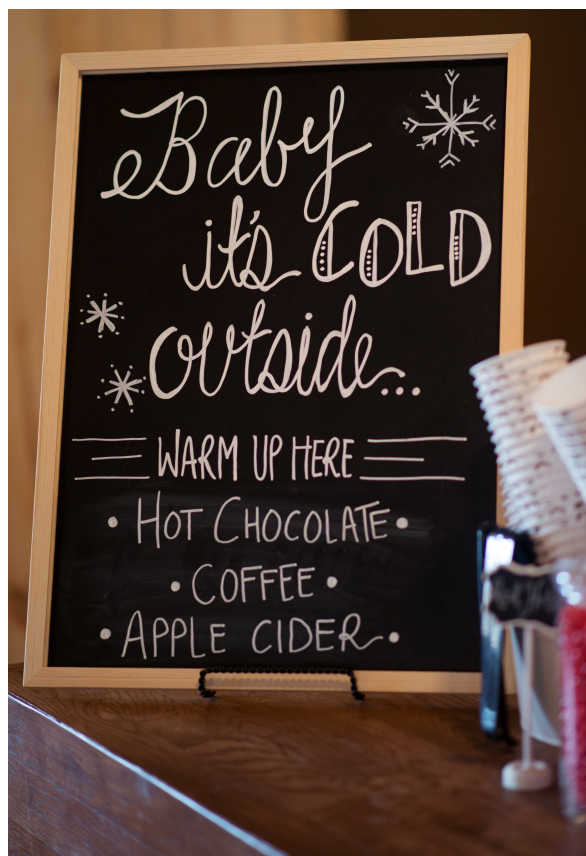 Baby
it's COLD
outside...
WARM UP HERE
• HOT CHOCOLATE •
• COFFEE •
• APPLE CIDER •